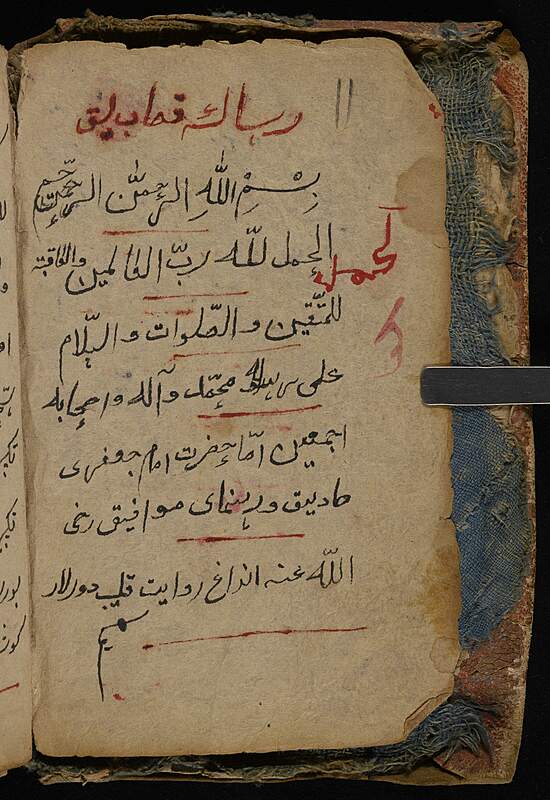 رساله قصاب لیق
بِسْمِ اللّٰهِ الرحمٰن الرحیم
الحمد لله ربّ العالمین والعاقبة
الحمد
للمتّقین والصّلوات والسّلام
علی رسوله محمّد وآله واصحابه
اجمعین امّا حضرت امام جعفری
صادیق و رهنمای موافیق رضی
اللّه عنه انداغ روایت قلیب دورلار
کیم